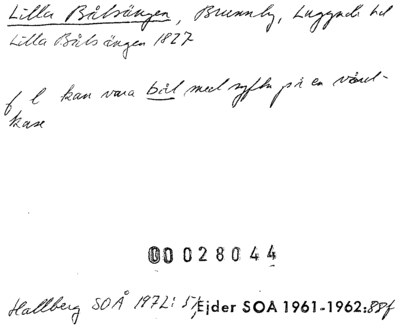 Lilla Bålsängen, Brunnby, Luggude hd
Lilla Båls ängen 1827
f l kan vara bål med syftn på en vård-
kase
00028044
Hallberg SOÅ 1972: 5 Ejder SOA 1961-1962:88f